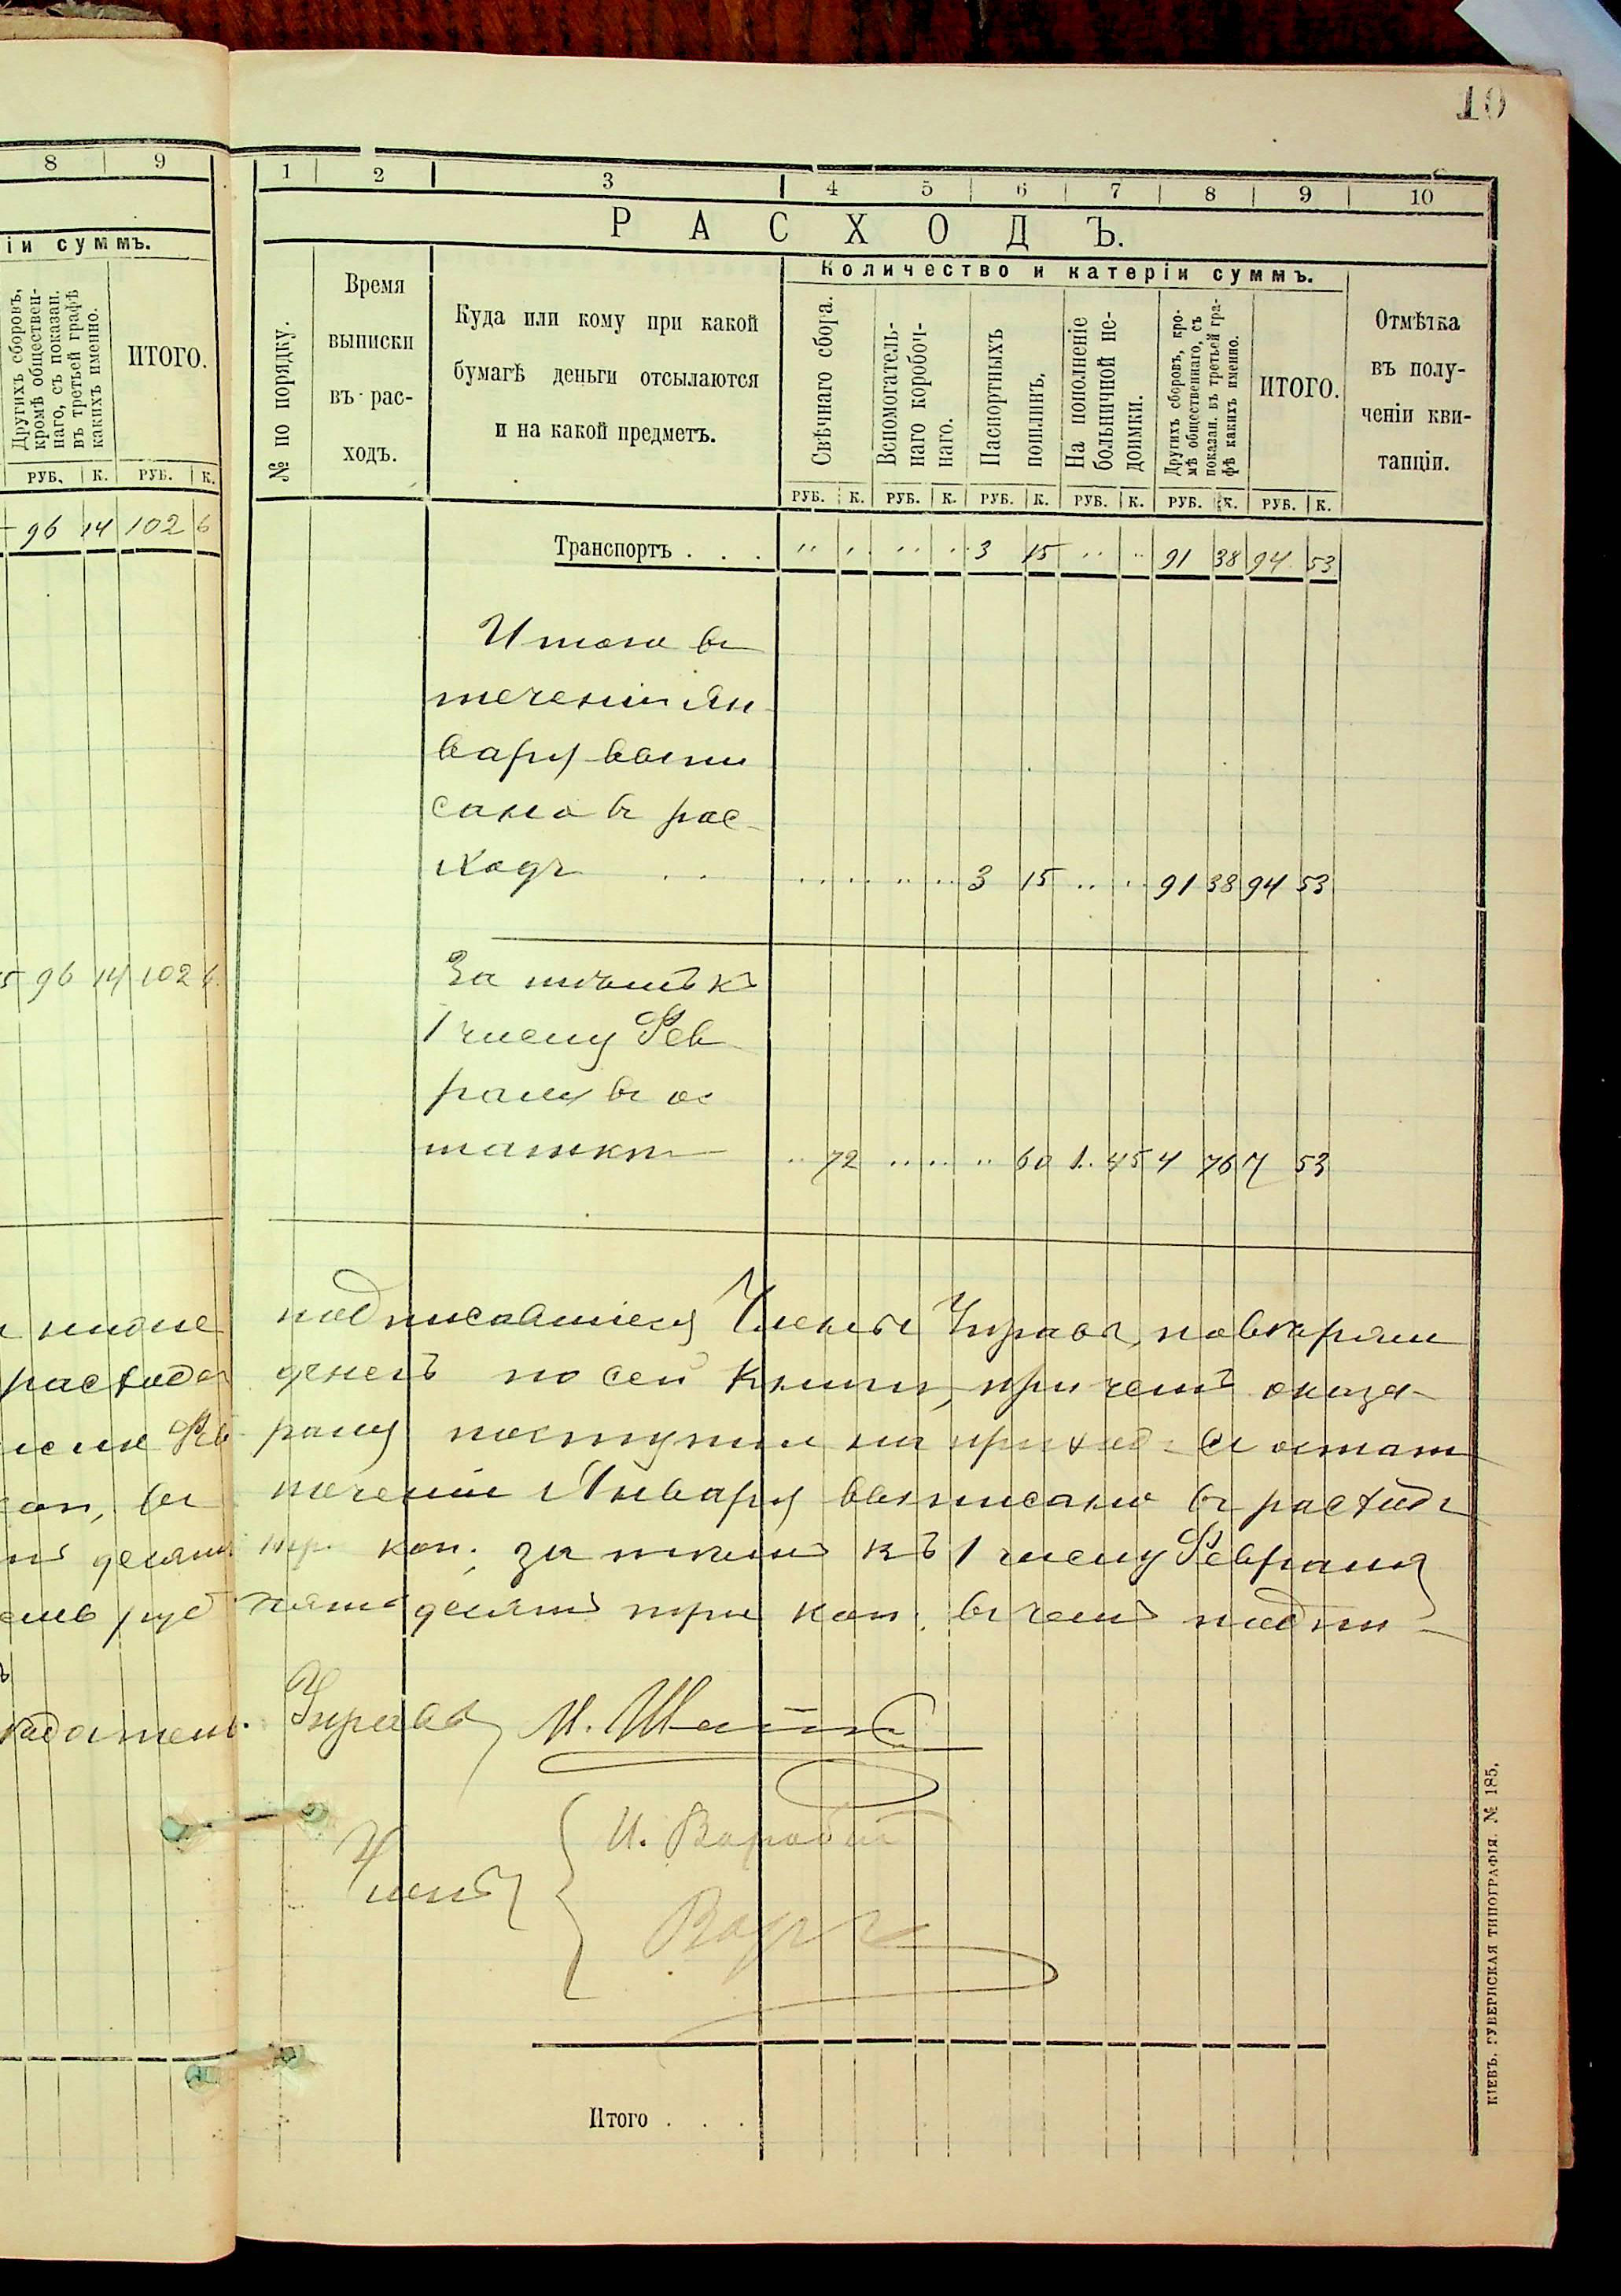 10
8 9
іи суммъ.
Другихъ сборовъ,
кромѣ обществен-
наго, съ показан.
въ третьей графѣ
какихъ именно.
ИТОГО.
РУБ. К. РУБ. К.
96 14 102 6
5 96 14 102 6
расхода
1 2 3 4 5 6 7 8 9 10
РАСХОДЪ.
Количество и катеріи суммъ.
№ по порядку.
Время
выписки
въ рас-
ходъ.
Куда или кому при какой
бумагѣ деньги отсылаются
и на какой предметъ.
Свѣчнаго сбора.
Вспомогатель-
наго коробоч-
наго.
Паспортныхъ
пошлинъ.
На пополненіе
больничной не-
доимки.
Другихъ сборовъ, кро-
мѣ общественнаго, съ
показан. въ третьей гра-
фѣ какихъ именно.
ИТОГО.
Отмѣтка
въ полу-
ченіи кви-
танціи.
РУБ. К. РУБ. К. РУБ. К. РУБ. К. РУБ. К. РУБ. К.
Транспортъ . . . 3 15 91 38 94 53
Итого въ
теченіи Ян
варя выпи
сано въ рас-
ходъ 3 15 91 38 94 53
За тѣмъ къ
1 числу Фев
раля въ ос
таткѣ 72 60 1 45 4 76 7 53
подписавшіеся Члены Управы, повѣряли
денегъ по сей книги, при чемъ оказа-
раля поступило на приходъ съ остат
теченіи Января выписано въ расходъ
три коп. за тѣмъ къ 1 числу Февраля
пятьдесятъ три коп. въ чемъ подпи-
Управы М.
Члены И.
Итого . . .
КІЕВЪ. ГУБЕРНСКАЯ ТИПОГРАФІЯ. № 185.